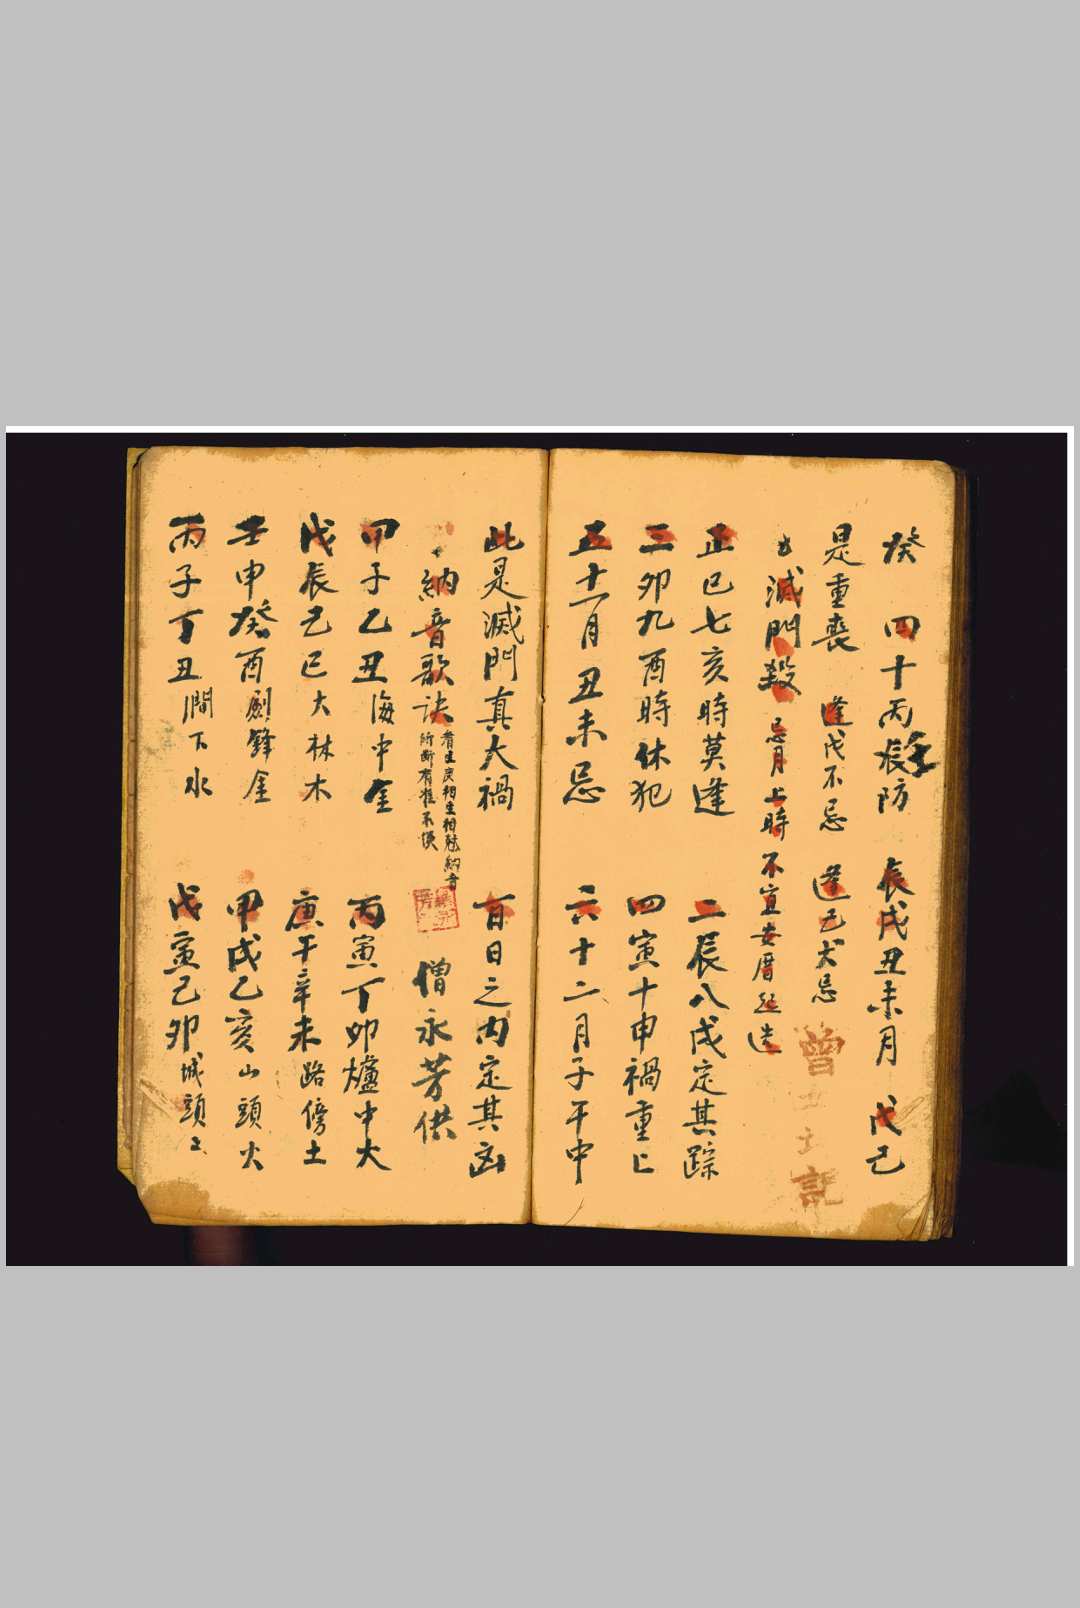 癸　四十丙辰防　辰戌丑未月　戊己
是重喪　逢戊不忌　逢己大忌
滅門殺　忌月上時不宜安厝起造
曾
士記
正巳七亥時莫逢　二辰八戌定其踪
三卯九酉時休犯　四寅十申禍重上
五十一月丑未忌　六十二月子午中
此是滅門真大禍　百日之内定其凶
納音歌訣　看生庚相生相尅納音
所断有准不悞
僧永芳供
甲子乙丑海中金　丙寅丁卯爐中火
戊辰己巳大林木　庚午辛未路傍土
壬申癸酉劍鋒金　甲戌乙亥山頭火
丙子丁丑澗下水　戊寅己卯城頭土